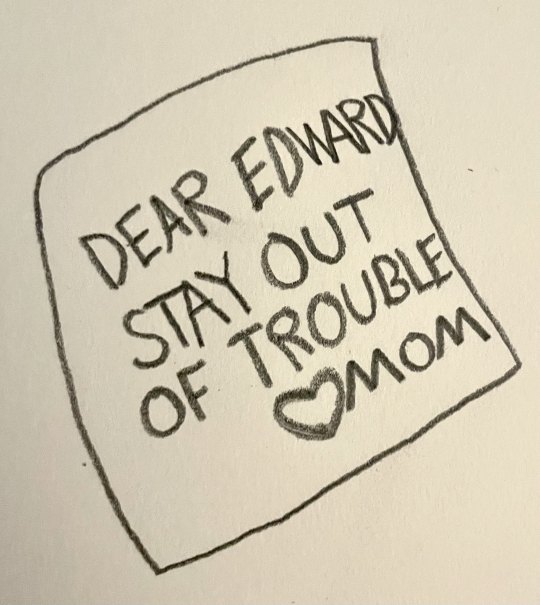 DEAR EDWARD
STAY OUT
OF TROUBLE
♡MOM